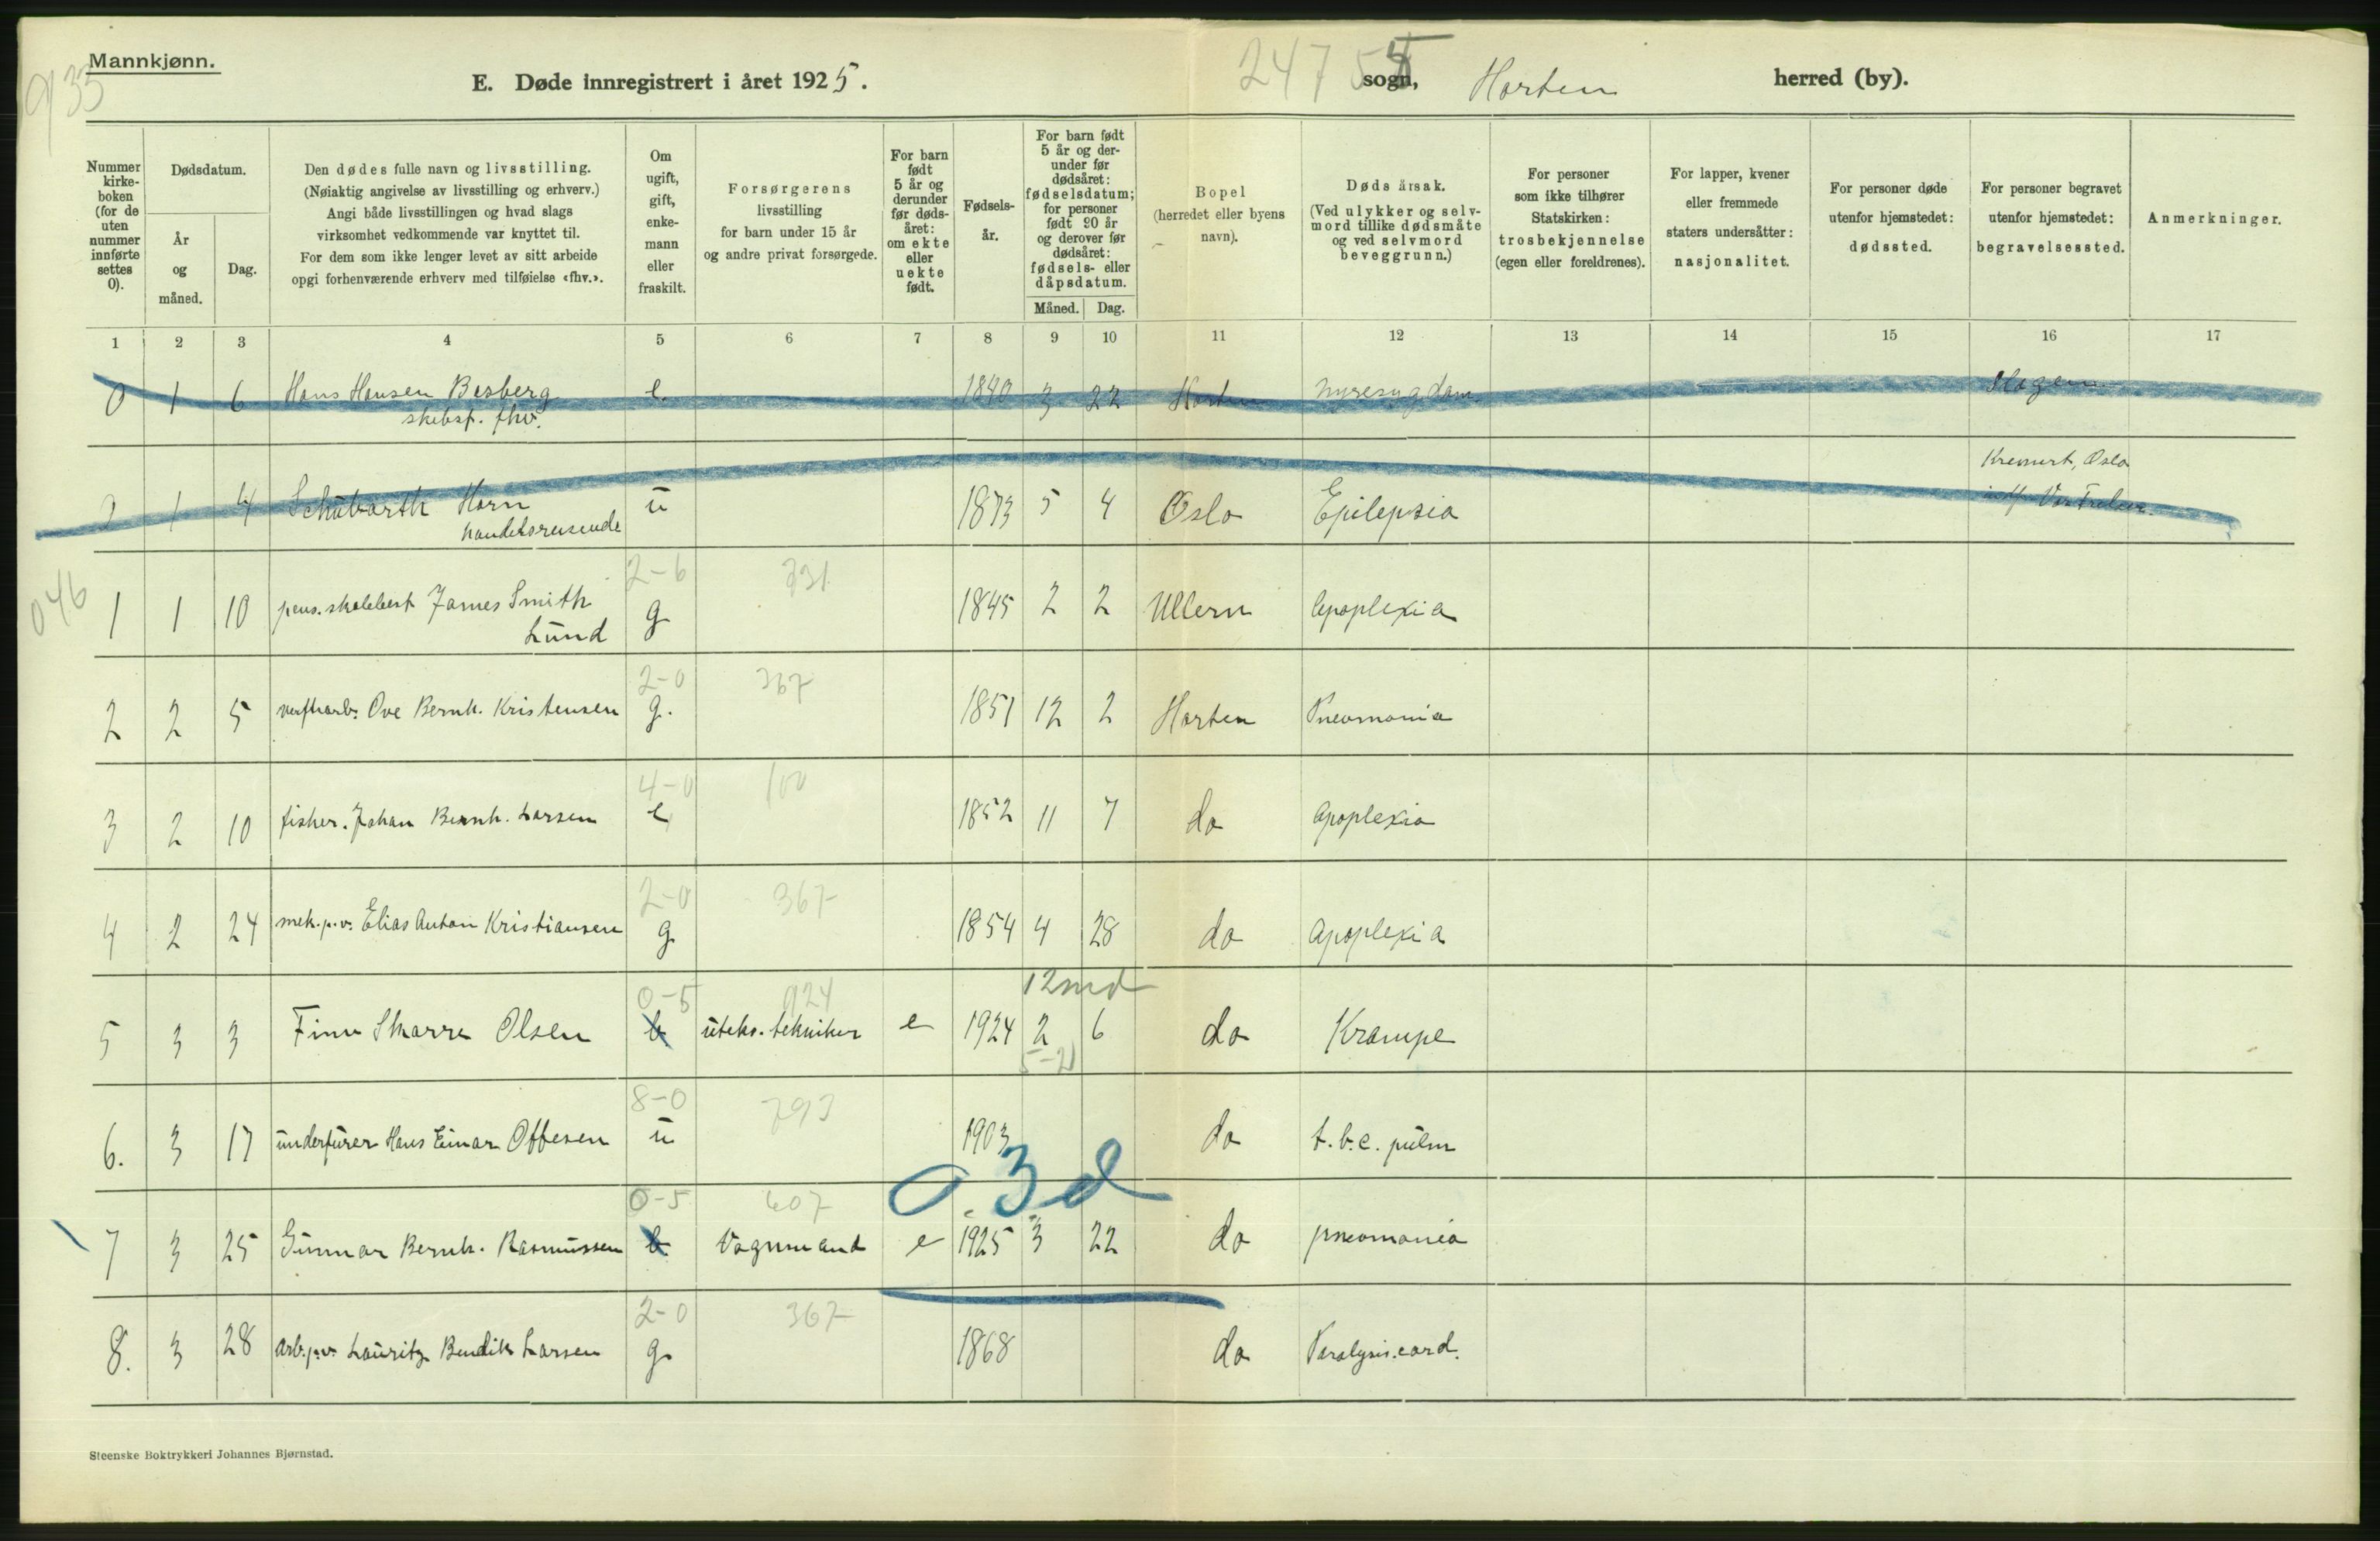 Mannkjønn.
933
E. Døde innregistrert i året 1925.
2475
sogn, Horten herred (by).
Nummer kirke-boken (for de uten nummer innførte settes 0).
Dødsdatum.
År og måned.
Dag.
Den dødes fulle navn og livsstilling.
(Nøiaktig angivelse av livsstilling og erhverv.)
Angi både livsstillingen og hvad slags
virksomhet vedkommende var knyttet til.
For dem som ikke lenger levet av sitt arbeide
opgi forhenværende erhverv med tilføielse «fhv.».
Om ugift, gift, enke-mann eller fraskilt.
Forsørgerens
livsstilling
for barn under 15 år
og andre privat forsørgede.
For barn født 5 år og derunder før døds-året: om ekte eller uekte født.
Fødsels-år.
For barn født 5 år og der-under før dødsåret: fødselsdatum; for personer født 20 år og derover før dødsåret: fødsels- eller dåpsdatum.
Måned. Dag.
Bopel
(herredet eller byens
navn).
Dødsårsak.
(Ved ulykker og selv-
mord tillike dødsmåte
og ved selvmord
beveggrunn.)
For personer
som ikke tilhører
Statskirken:
trosbekjennelse
(egen eller foreldrenes).
For lapper, kvener
eller fremmede
staters undersåtter:
nasjonalitet.
For personer døde
utenfor hjemstedet:
dødssted.
For personer begravet
utenfor hjemstedet:
begravelsessted.
Anmerkninger.
1 2 3 4 5 6 7 8 9 10 11 12 13 14 15 16 17
0 1 6 Hans Hansen Basberg e. 1840 3 22 Horten nyresygdom Slagen
skibsf. fhv.
Kremert, Oslo
1 4 Schübarth Horn ü 1873 5 4 Oslo Epilepsia Vor Frelser.
handelsreisende
2-6 331
046
1 1 10 pens. skolebest. James Smith g 1845 2 2 Ullern Apoplexia
Lünd
2-0 367
2 2 5 verftsarb. Ove Bernh. Kristensen g. 1851 12 2 Horten Pneomonia
4-0 100
3 2 10 fisker. Johan Bernh. Larsen e 1852 11 7 do Apoplexia
2-0 367
4 2 24 mek. p.v. Elias Anton Kristiansen g 1854 4 28 do Apoplexia
0-5 924 12 md
5 3 3 Finn Skarre Olsen b üteks. tekniker e 1924 2 6 do Krampe
5-2
8-0 793
6. 3 17 ünderfürer Hans Einar Offesen ü 1903 do t.b.c. pülm
0 3 d
0-5 607
7 3 25 Günnar Bernh. Rasmüssen b. Vognmand e 1925 3 22 do pneomonia
2-0 367
8. 3 28 Arb. p.v. Laüritz Bendik Larsen g. 1868 do Paralysis. card.
Steenske Boktrykkeri Johannes Bjørnstad.